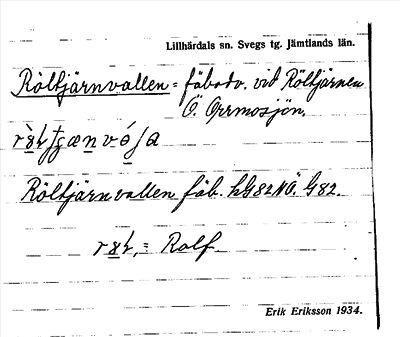 Lillhärdals sn. Svegs tg. Jämtlands län.
Röltjärnvallen = fäbodv. vid Röltjärnen
Ö. Orrmosjön.
Röltjärnvallen fäb. hG82NÖ. G82.
= Rolf
Erik Eriksson 1934.